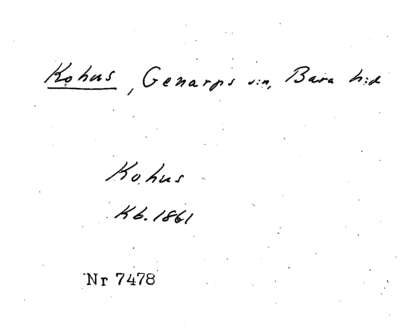 Kohus, Genarps s:n, Bara h:d
Kohus
Kb. 1861
Nr 7478